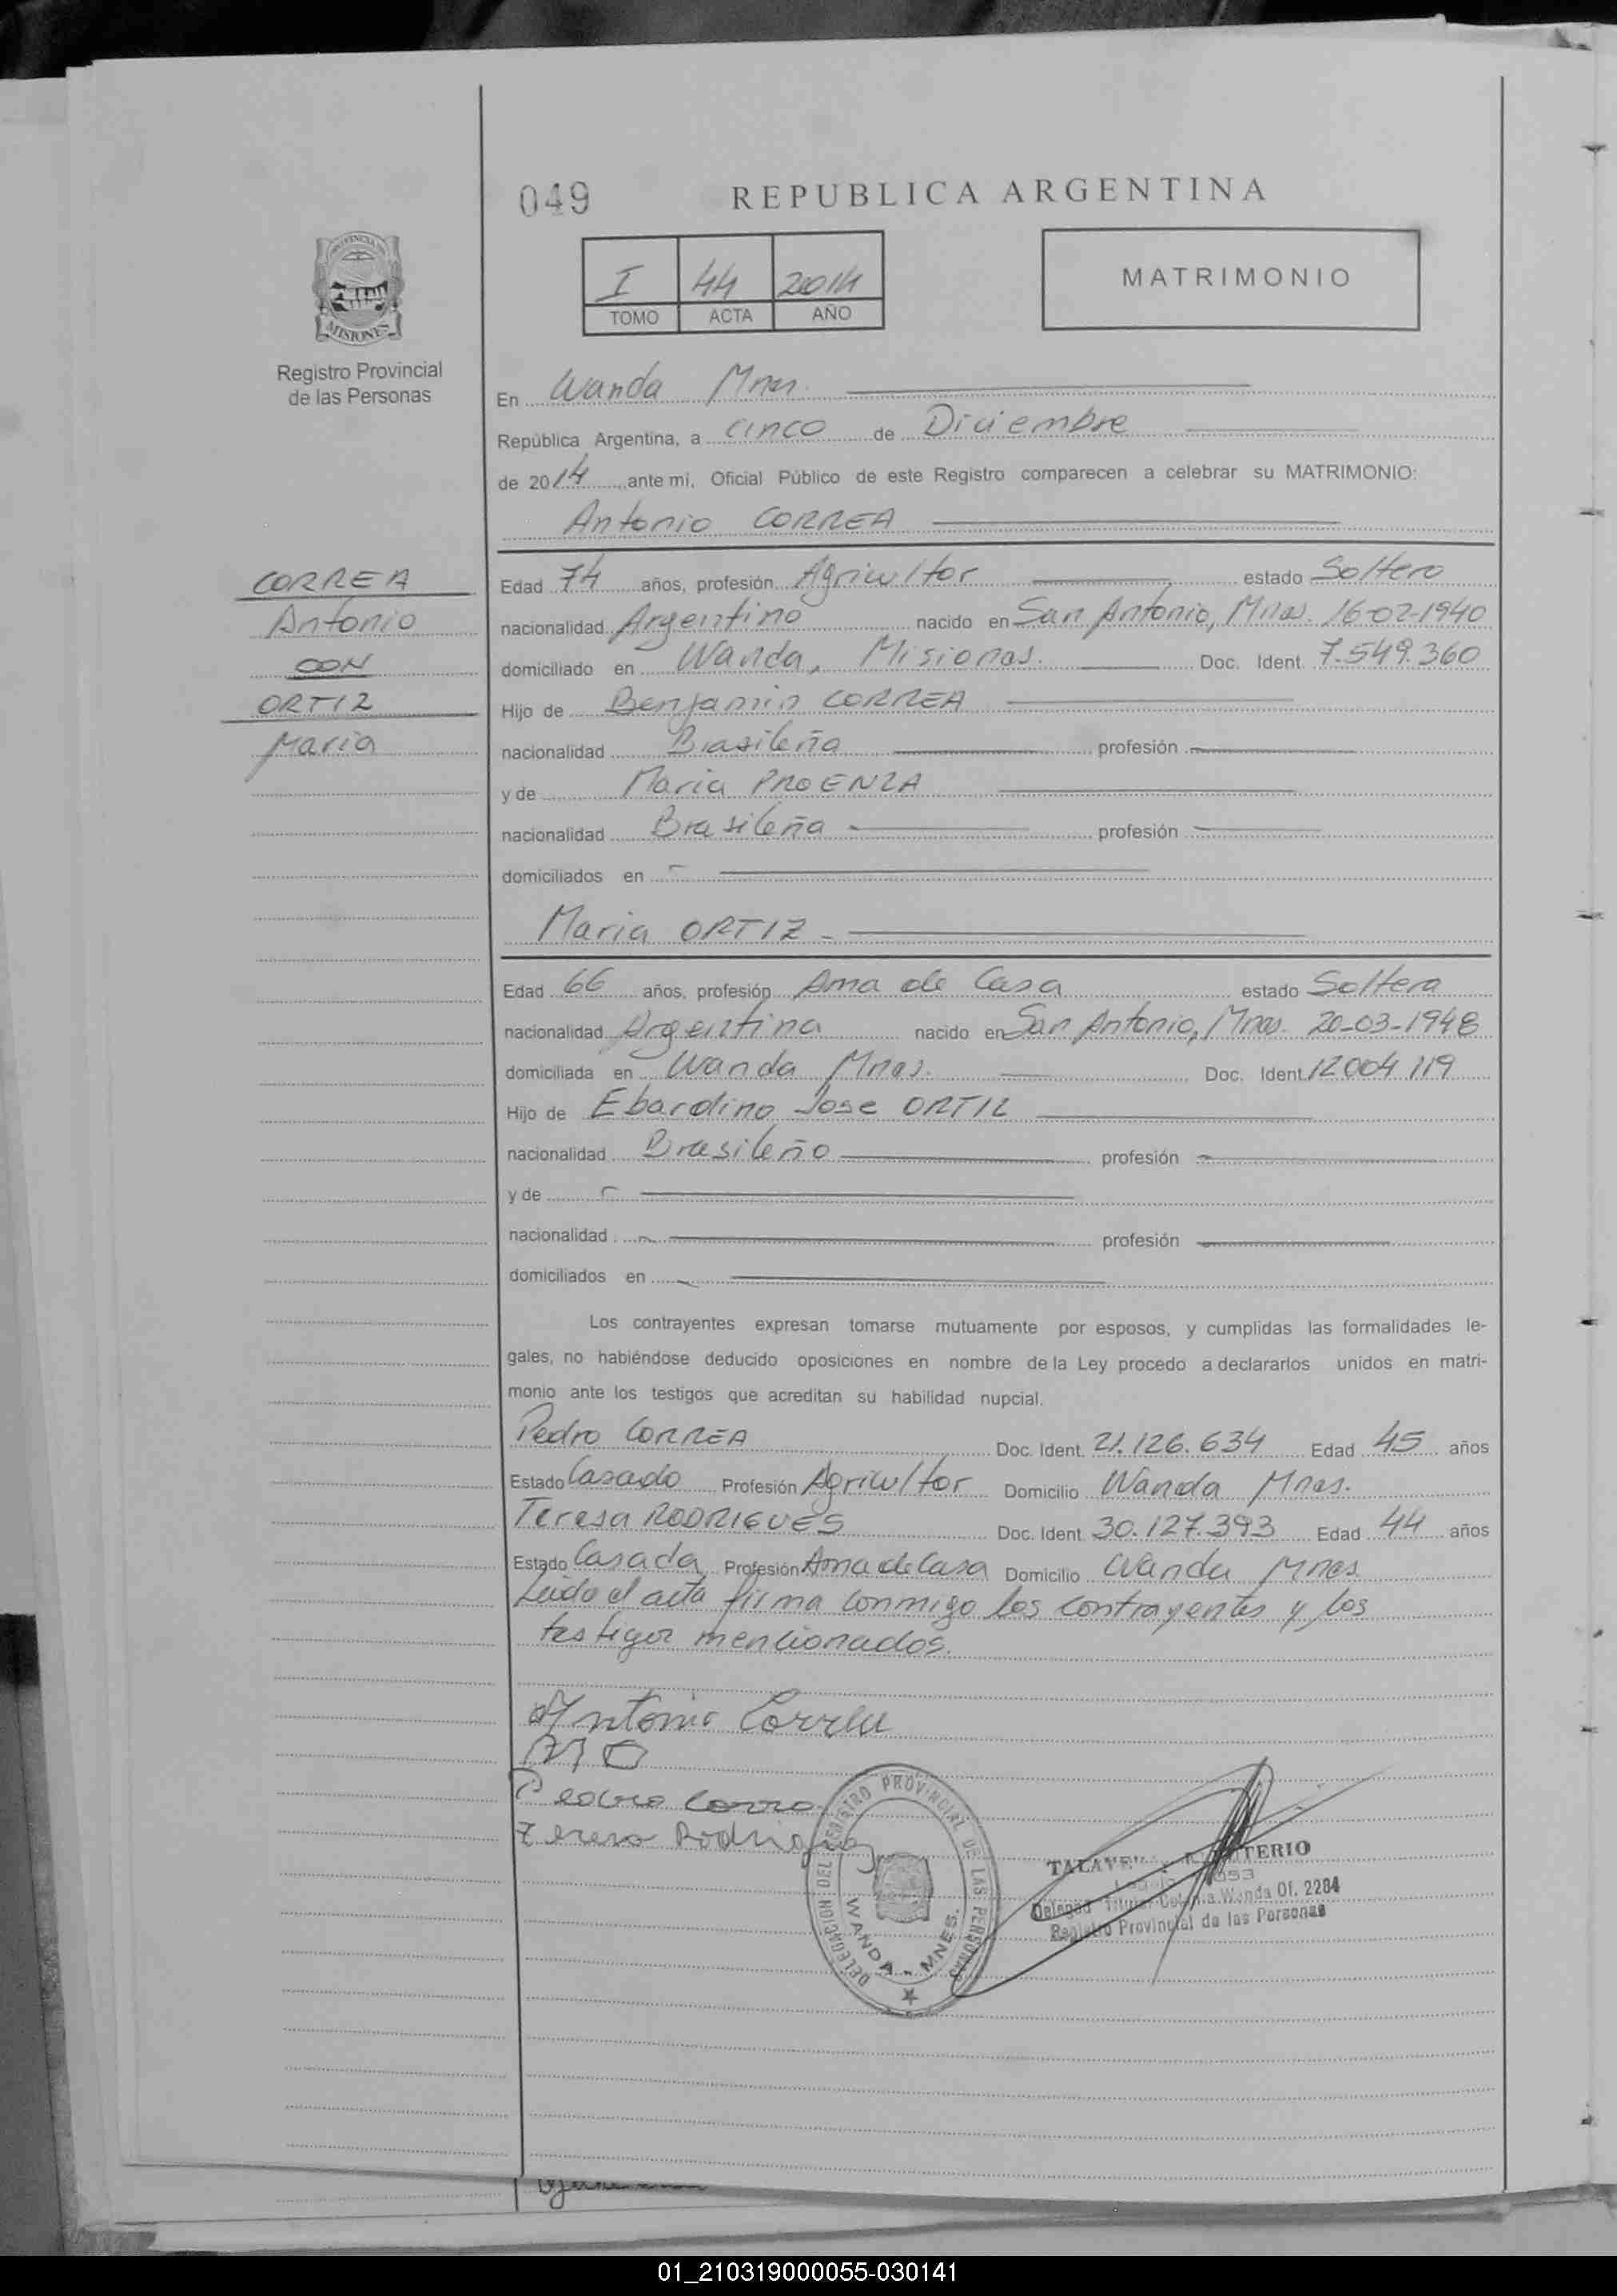 049
REPUBLICA ARGENTINA
I 44 2014
TOMO ACTA AÑO
MATRIMONIO
MISIONES
Registro Provincial
de las Personas
En Wanda Mnes.
República Argentina, a cinco de Diciembre
de 2014 ante mi, Oficial Público de este Registro comparecen a celebrar su MATRIMONIO:
Antonio CORREA
CORREA
Antonio
CON
ORTIZ
Maria
Edad 74 años, profesión Agricultor estado Soltero
nacionalidad Argentino nacido en San Antonio, Mnes. 16-02-1940
domiciliado en Wanda, Misiones. Doc. Ident. 7.549.360
Hijo de Benjamin CORREA
nacionalidad Brasileña profesión
y de Maria PROENZA
nacionalidad Brasileña profesión
domiciliados en
Maria ORTIZ
Edad 66 años, profesión Ama de Casa estado Soltera
nacionalidad Argentina nacido en San Antonio, Mnes. 20-03-1948
domiciliada en Wanda Mnes. Doc. Ident. 12004119
Hijo de Ebardino Jose ORTIZ
nacionalidad Brasileño profesión
y de
nacionalidad profesión
domiciliados en
Los contrayentes expresan tomarse mutuamente por esposos, y cumplidas las formalidades le-
gales, no habiéndose deducido oposiciones en nombre de la Ley procedo a declararlos unidos en matri-
monio ante los testigos que acreditan su habilidad nupcial.
Pedro CORREA Doc. Ident. 21.126.634 Edad 45 años
Estado Casado Profesión Agricultor Domicilio Wanda Mnes.
Teresa RODRIGUES Doc. Ident. 30.127.393 Edad 44 años
Estado Casada Profesión Ama de Casa Domicilio Wanda Mnes.
Leido el acta firma conmigo los contrayentes y los
testigos mencionados.
Antonio Correa
MO
Pedro Corra
Teresa Rodrigues
DELEGACION DEL REGISTRO PROVINCIAL DE LAS PERSONAS
WANDA - MNES.
Wanda Of. 2284
Registro Provincial de las Personas
01_210319000055-030141